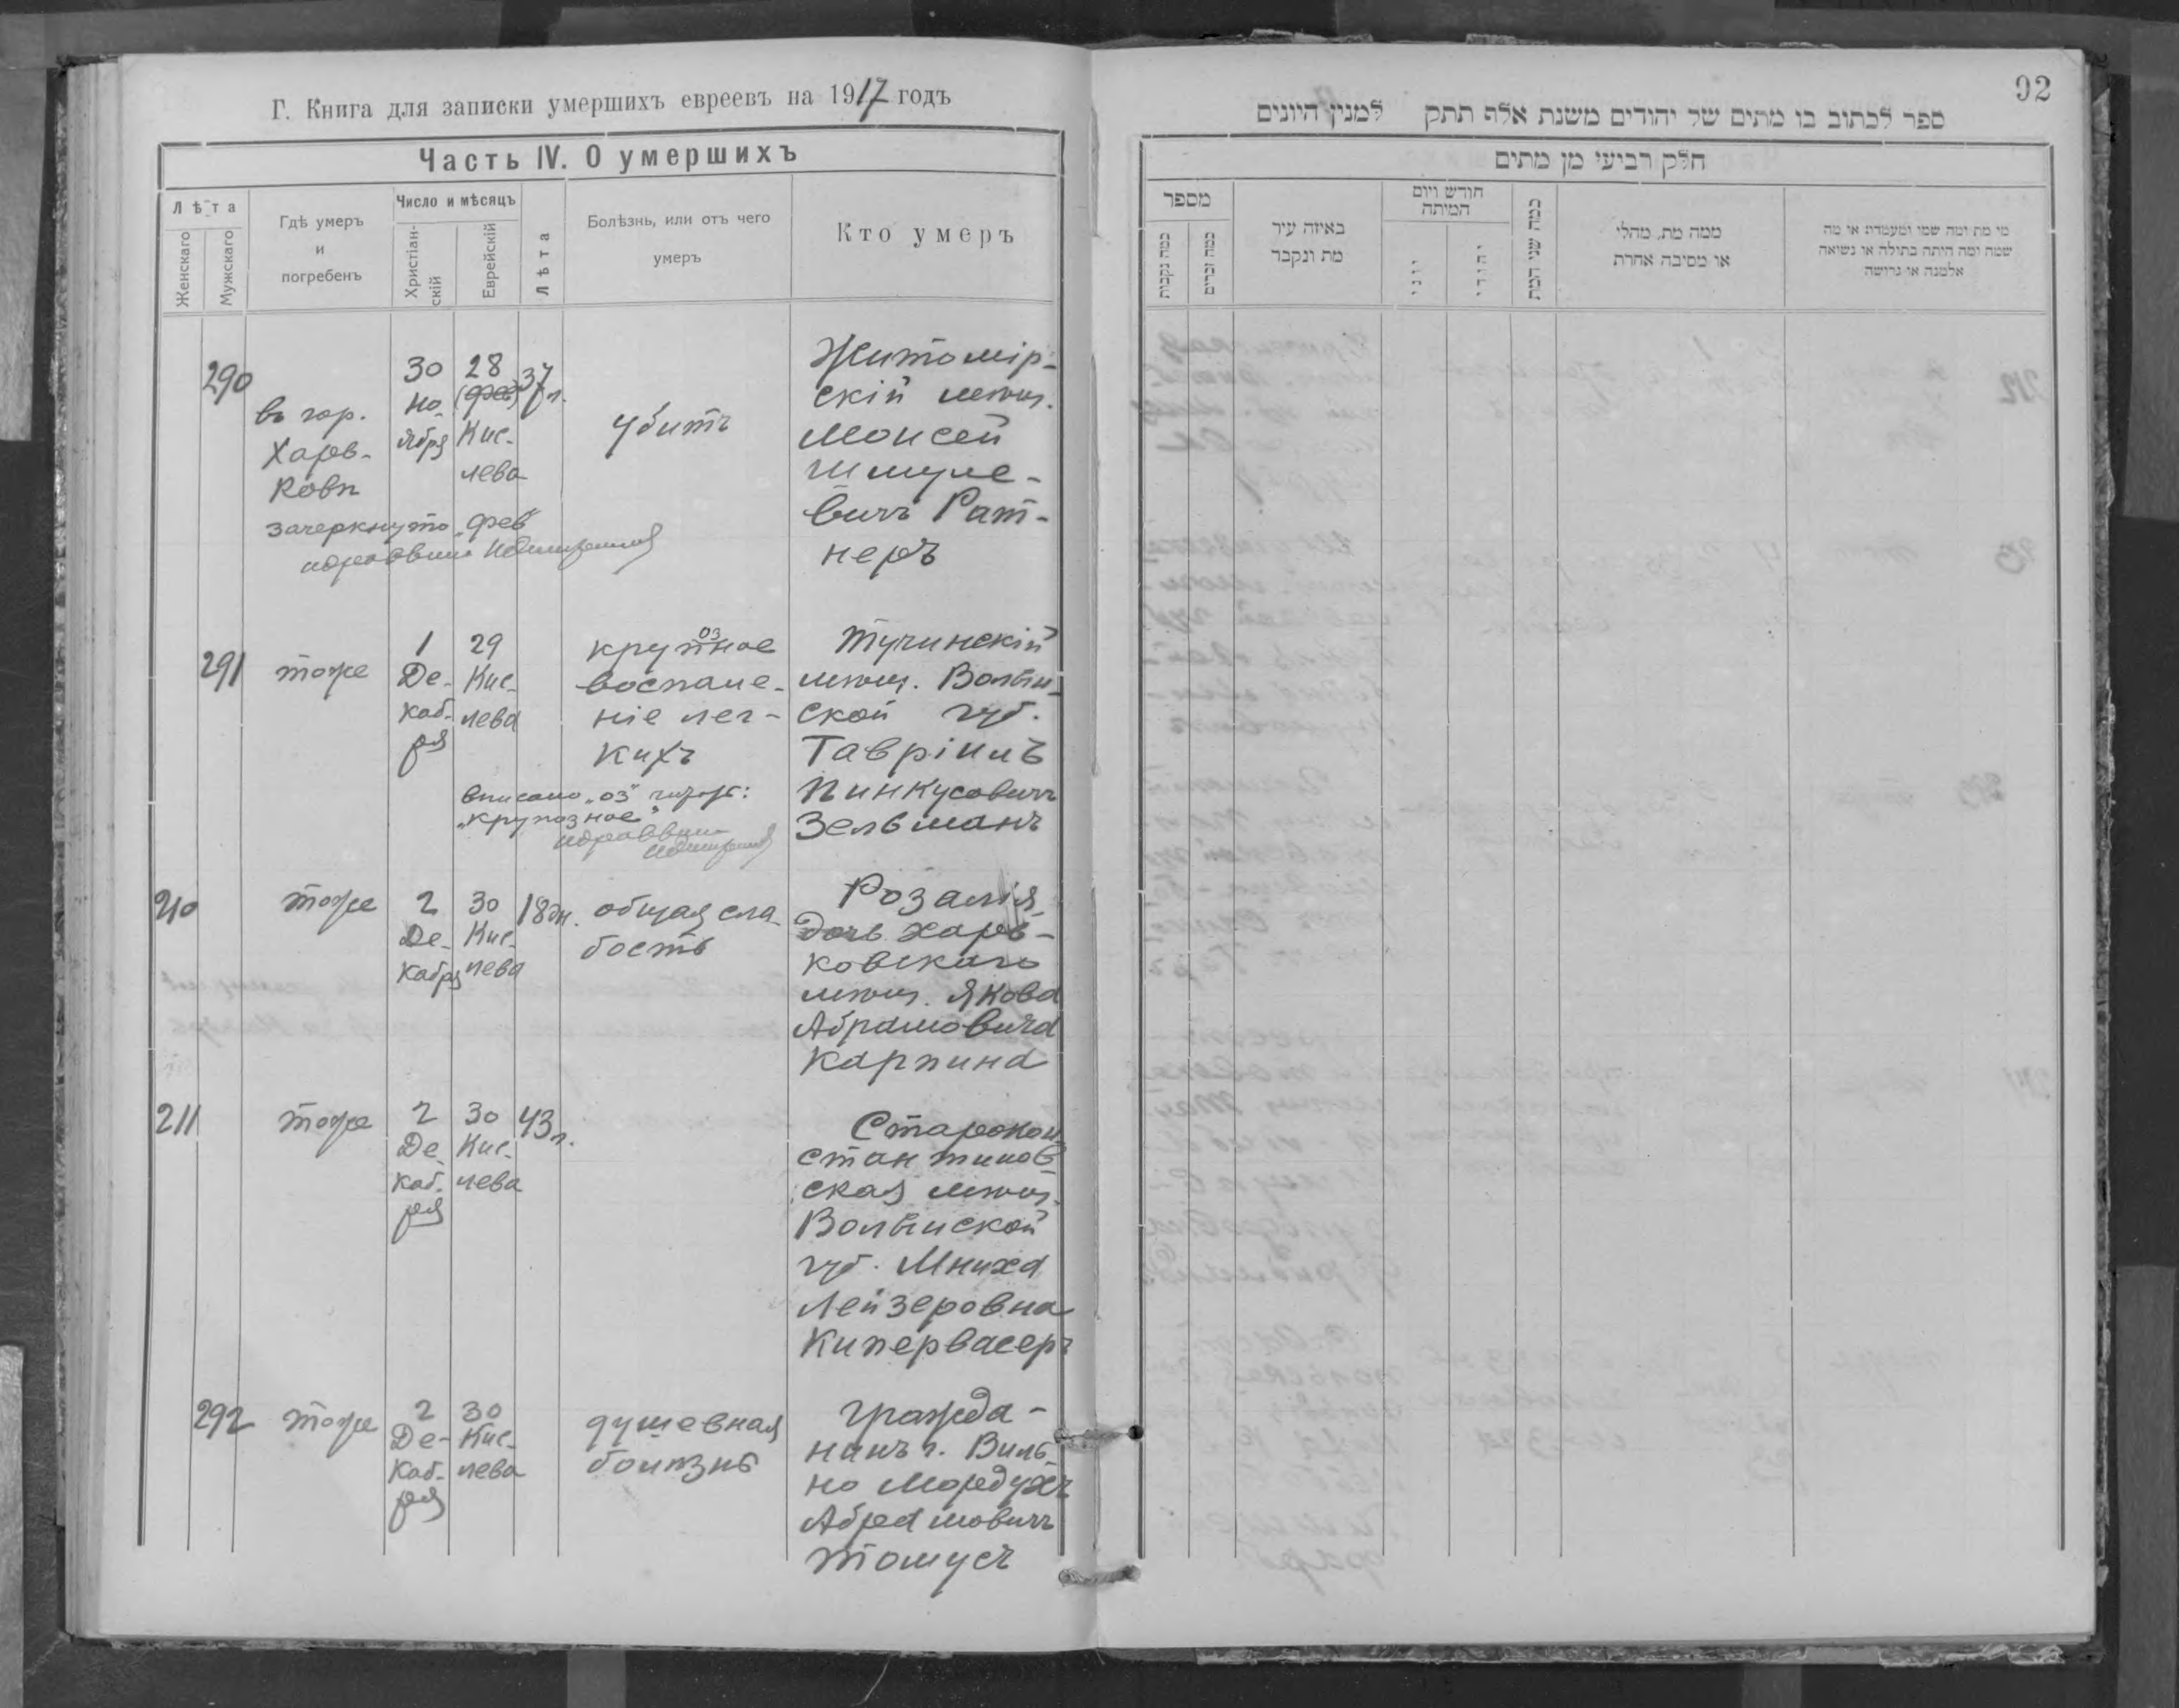 Г. Книга для записки умершихъ евреевъ на 1917 годъ
Часть IV. О умершихъ
Лѣта
Женскаго
Мужскаго
Гдѣ умеръ
и
погребенъ
Число и мѣсяцъ
Христіан-
скій
Еврейскій
Лѣта
Болѣзнь, или отъ чего
умеръ
Кто умеръ
290
въ гор.
Харь-
ковѣ
30
Но-
ября
28
(фев)
Кис-
лева
37 л.
Убитъ
Житомір-
скій мѣщ.
Моисей
Шмуле-
вичъ Рат-
неръ
зачеркнуто „фев"
291
тоже
1
Де-
каб-
ря
29
Кис-
лева
оз
крупное
воспале-
ніе лег-
кихъ
Тучинскій
мѣщ. Волын-
ской губ.
Тавріилъ
Пинкусовичъ
Зельманъ
вписано „оз"
„крупозное"
210
тоже
2
Де-
кабря
30
Кис-
лева
18 дн.
общая сла-
бость
Розалія
дочь харь-
ковскаго
мѣщ. Якова
Абрамовича
Карпина
211
тоже
2
Де-
каб-
ря
30
Кис-
лева
43 л.
Старокон-
стантинов-
ская мѣщ.
Волынской
губ. Мниха
Лейзеровна
Кипервасеръ
292
тоже
2
Де-
каб-
ря
30
Кис-
лева
душевная
болѣзнь
гражда-
нинъ г. Виль-
но Мордухъ
Абрамовичъ
Томусъ
92
ספר לכתוב בו מתים של יהודים משנת אלף תתק למנין היונים
חלק רביעי מן מתים
מספר
כמה נקבות
כמה זכרים
באיזה עיר
מת ונקבר
חודש ויום
המיתה
יוני
יהודי
כמה שני חייו
ממה מת, מחלי
או מסיבה אחרת
מי מת ומה שמו ומעמדו או מה
שמה ומה היתה בתולה או נשואה
אלמנה או גרושה